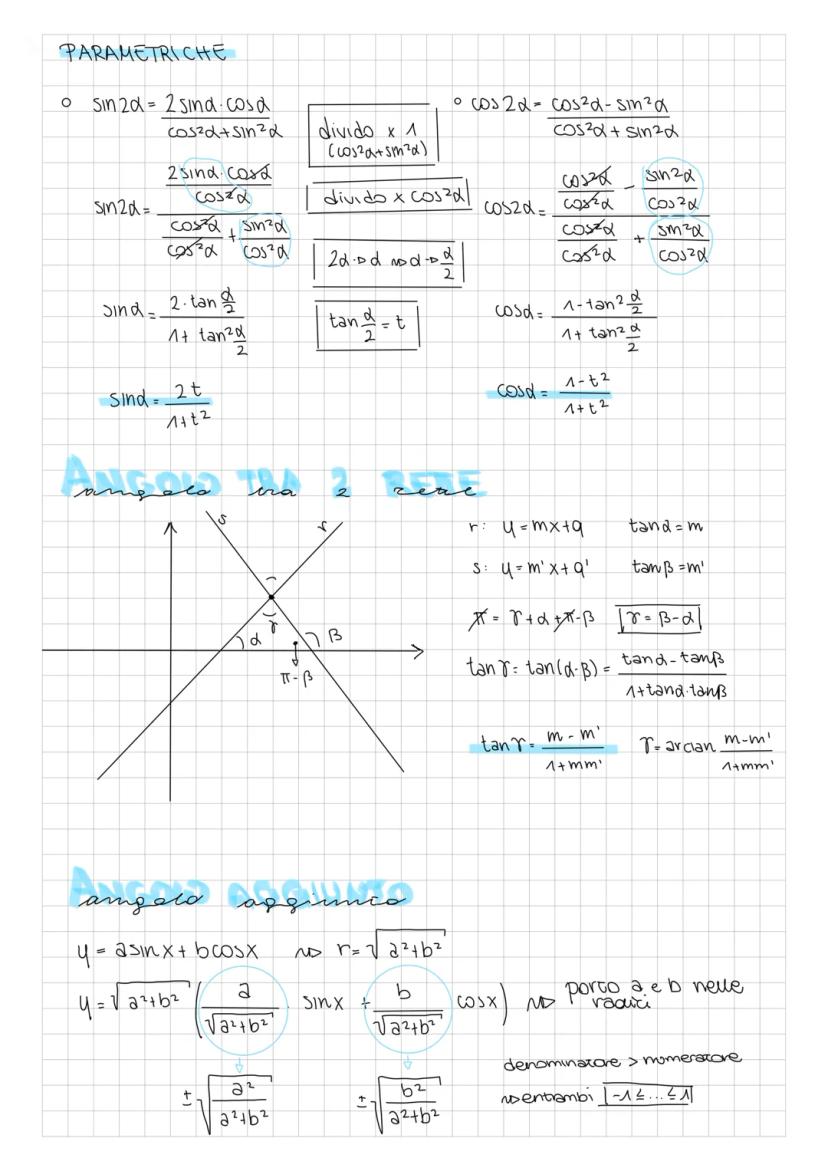 PARAMETRICHE
° sin2α = 2sinα·cosα / cos²α+sin²α
divido x 1
(cos²α+sin²α)
° cos2α = cos²α-sin²α / cos²α+sin²α
sin2α = (2sinα·cosα / cos²α) / (cos²α / cos²α + sin²α / cos²α)
divido x cos²α
cos2α = (cos²α / cos²α - sin²α / cos²α) / (cos²α / cos²α + sin²α / cos²α)
2α → α ⇝ α → α/2
sinα = 2·tan α/2 / 1+tan² α/2
tan α/2 = t
cosα = 1-tan² α/2 / 1+tan² α/2
sinα = 2t / 1+t²
cosα = 1-t² / 1+t²
ANGOLO TRA 2 RETE
angolo tra 2 rete
s r
r: y = mx+q tanα = m
s: y = m'x+q' tanβ = m'
γ
α β
π-β
π = γ+α+π-β γ = β-α
tanγ = tan(α-β) = tanα-tanβ / 1+tanα·tanβ
tanγ = m-m' / 1+mm' γ = arctan m-m' / 1+mm'
ANGOLO AGGIUNTO
angolo aggiunto
y = asinx + bcosx ⇝ r = √a²+b²
y = √a²+b² (a / √a²+b² · sinx + b / √a²+b² cosx) ⇝ porto a e b nelle
radici
denominatore > numeratore
± √a² / a²+b² ± √b² / a²+b²
⇝ entrambi -1 ≤ ... ≤ 1